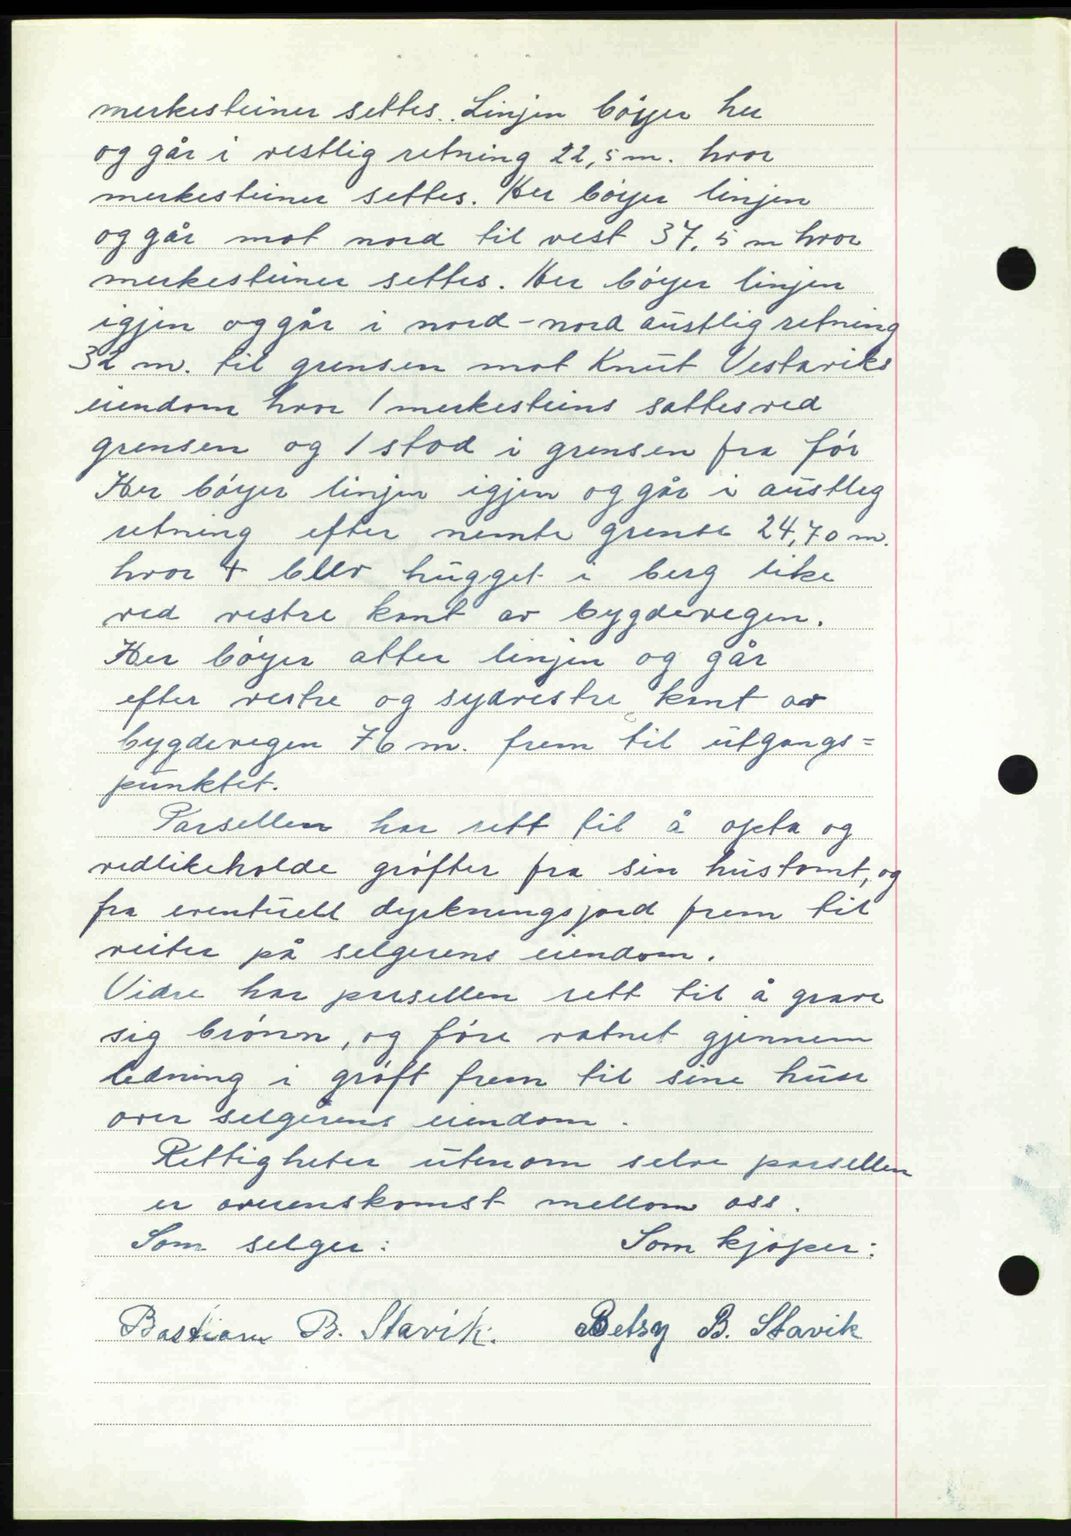 merkesteiner settes. Linjen bøyer her
og går i vestlig retning 22,5 m. hvor
merkesteiner settes. Her bøyer linjen
og går mot nord til vest 37,5 m hvor
merkesteiner settes. Her bøyer linjen
igjen og går i nord-nord austlig retning
32 m. til grensen mot Knut Vestaviks
eiendom hvor 1 merkesteins sattes ved
grensen og 1 stod i grensen fra før
Her bøyer linjen igjen og går i austleg
retning efter nemte grense 24,70 m.
hvor + blev hugget i berg like
ved vestre kant av bygdevegen.
Her bøyer atter linjen og går
efter vestre og sydvestre kant av
bygdevegen 76 m. frem til utgangs=
punktet.
Parsellen har rett til å opta og
vedlikeholde grøfter fra sin hustomt, og
fra eventuell dyrkningsjord frem til
veiter på selgerens eiendom.
Vidre har parsellen rett til å grave
sig brønn, og føre vatnet gjennem
ledning i grøft frem til sine huse
over selgerens eiendom.
Rettigheter utenom selve parsellen
er overenskomst mellom oss.
Som selger: Som kjøper:
Bastian B. Stavik. Betsy B. Stavik